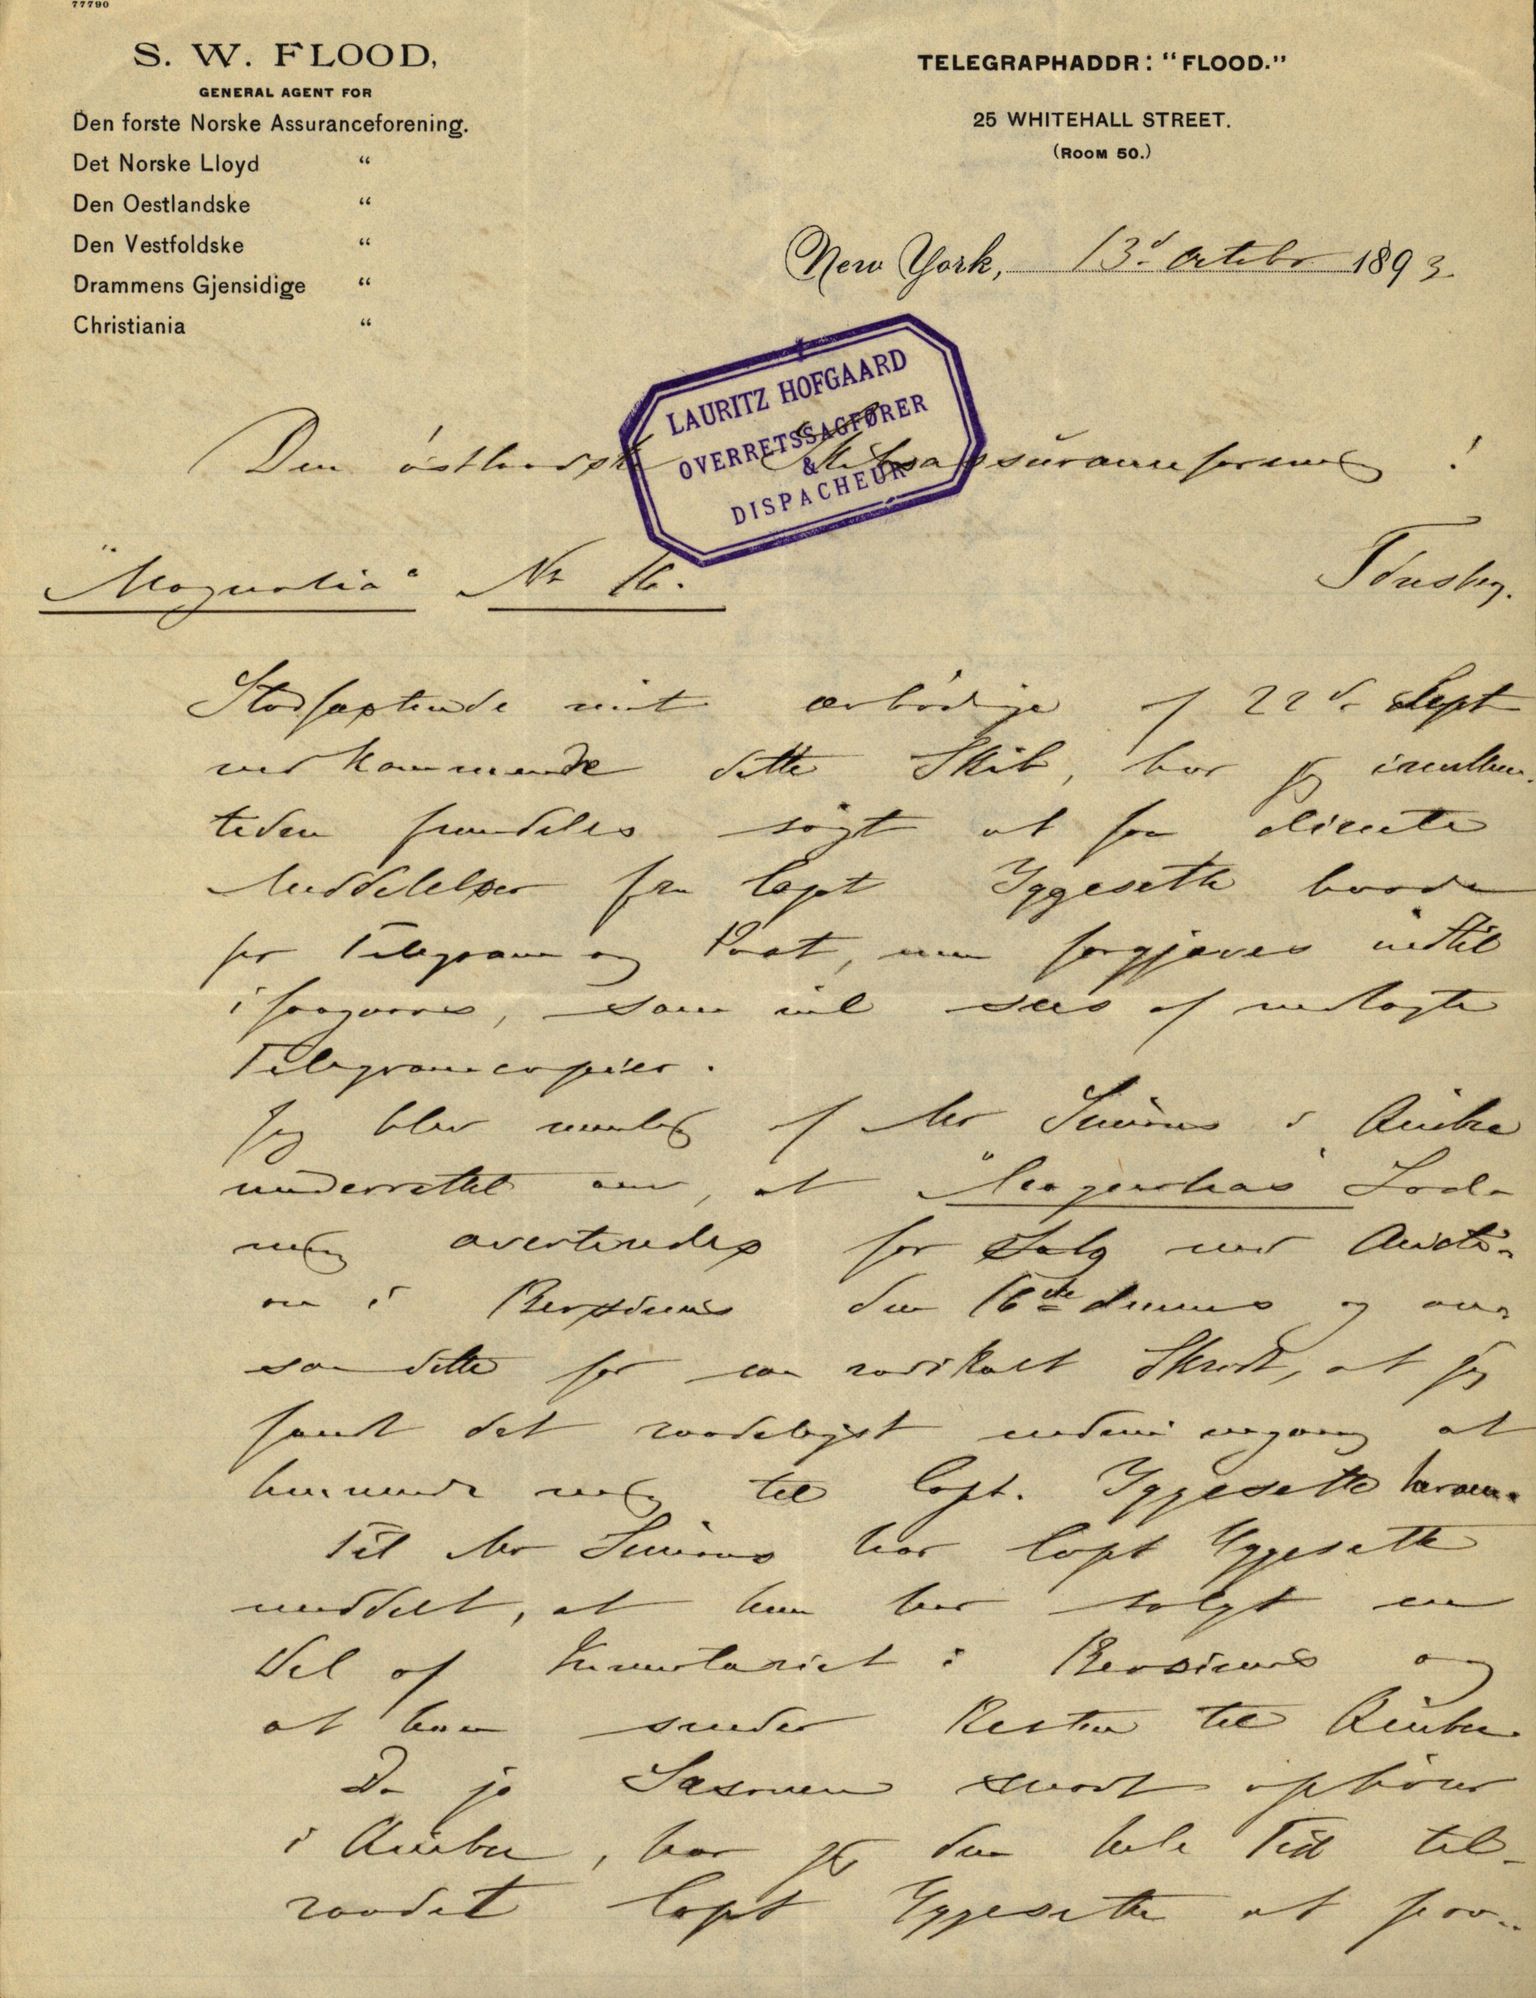 77790
S. W. FLOOD,
GENERAL AGENT FOR
Den forste Norske Assuranceforening.
Det Norske Lloyd "
Den Oestlandske "
Den Vestfoldske "
Drammens Gjensidige "
Christiania "
TELEGRAPHADDR: "FLOOD."
25 WHITEHALL STREET.
(ROOM 50.)
New York, 13d October 1893
LAURITZ HOFGAARD
OVERRETSSAGFØRER
&
DISPACHEUR
Den østlandske Skibsassuranceforening !
Tønsberg.
"Magnolia" No 16.
Stadfæstende mit ærbødige af 22d Sept
vedkommende dette Skib, har jeg imidler-
tiden fremdeles søgt at faa directe
Meddelelser fra Capt Yggeseth baade
per Telegram og Post, men forgjæves indtil
iforgaars, som vil sees af vedlagte
Telegramcopier.
Jeg blev nemlig af Mr Simons i Quebec
underrettet om, at "Magnolias" Lad-
ning averteredes for Salg ved Aucti-
on i den 16de dennes og an-
saa dette for saa radikalt Skridt, at jeg
fandt det raadeligst endnu engang at
henvende mig til Capt. Yggeseth herom.
Til Mr Simons har Capt Yggeseth
meddelt, at han har solgt en
Del af Inventariet i og
at han sender Resten til Quebec.
Da jo Sæsonen snart ophører
i Quebec, har jeg den hele Tid til-
raadet Capt Yggeseth at